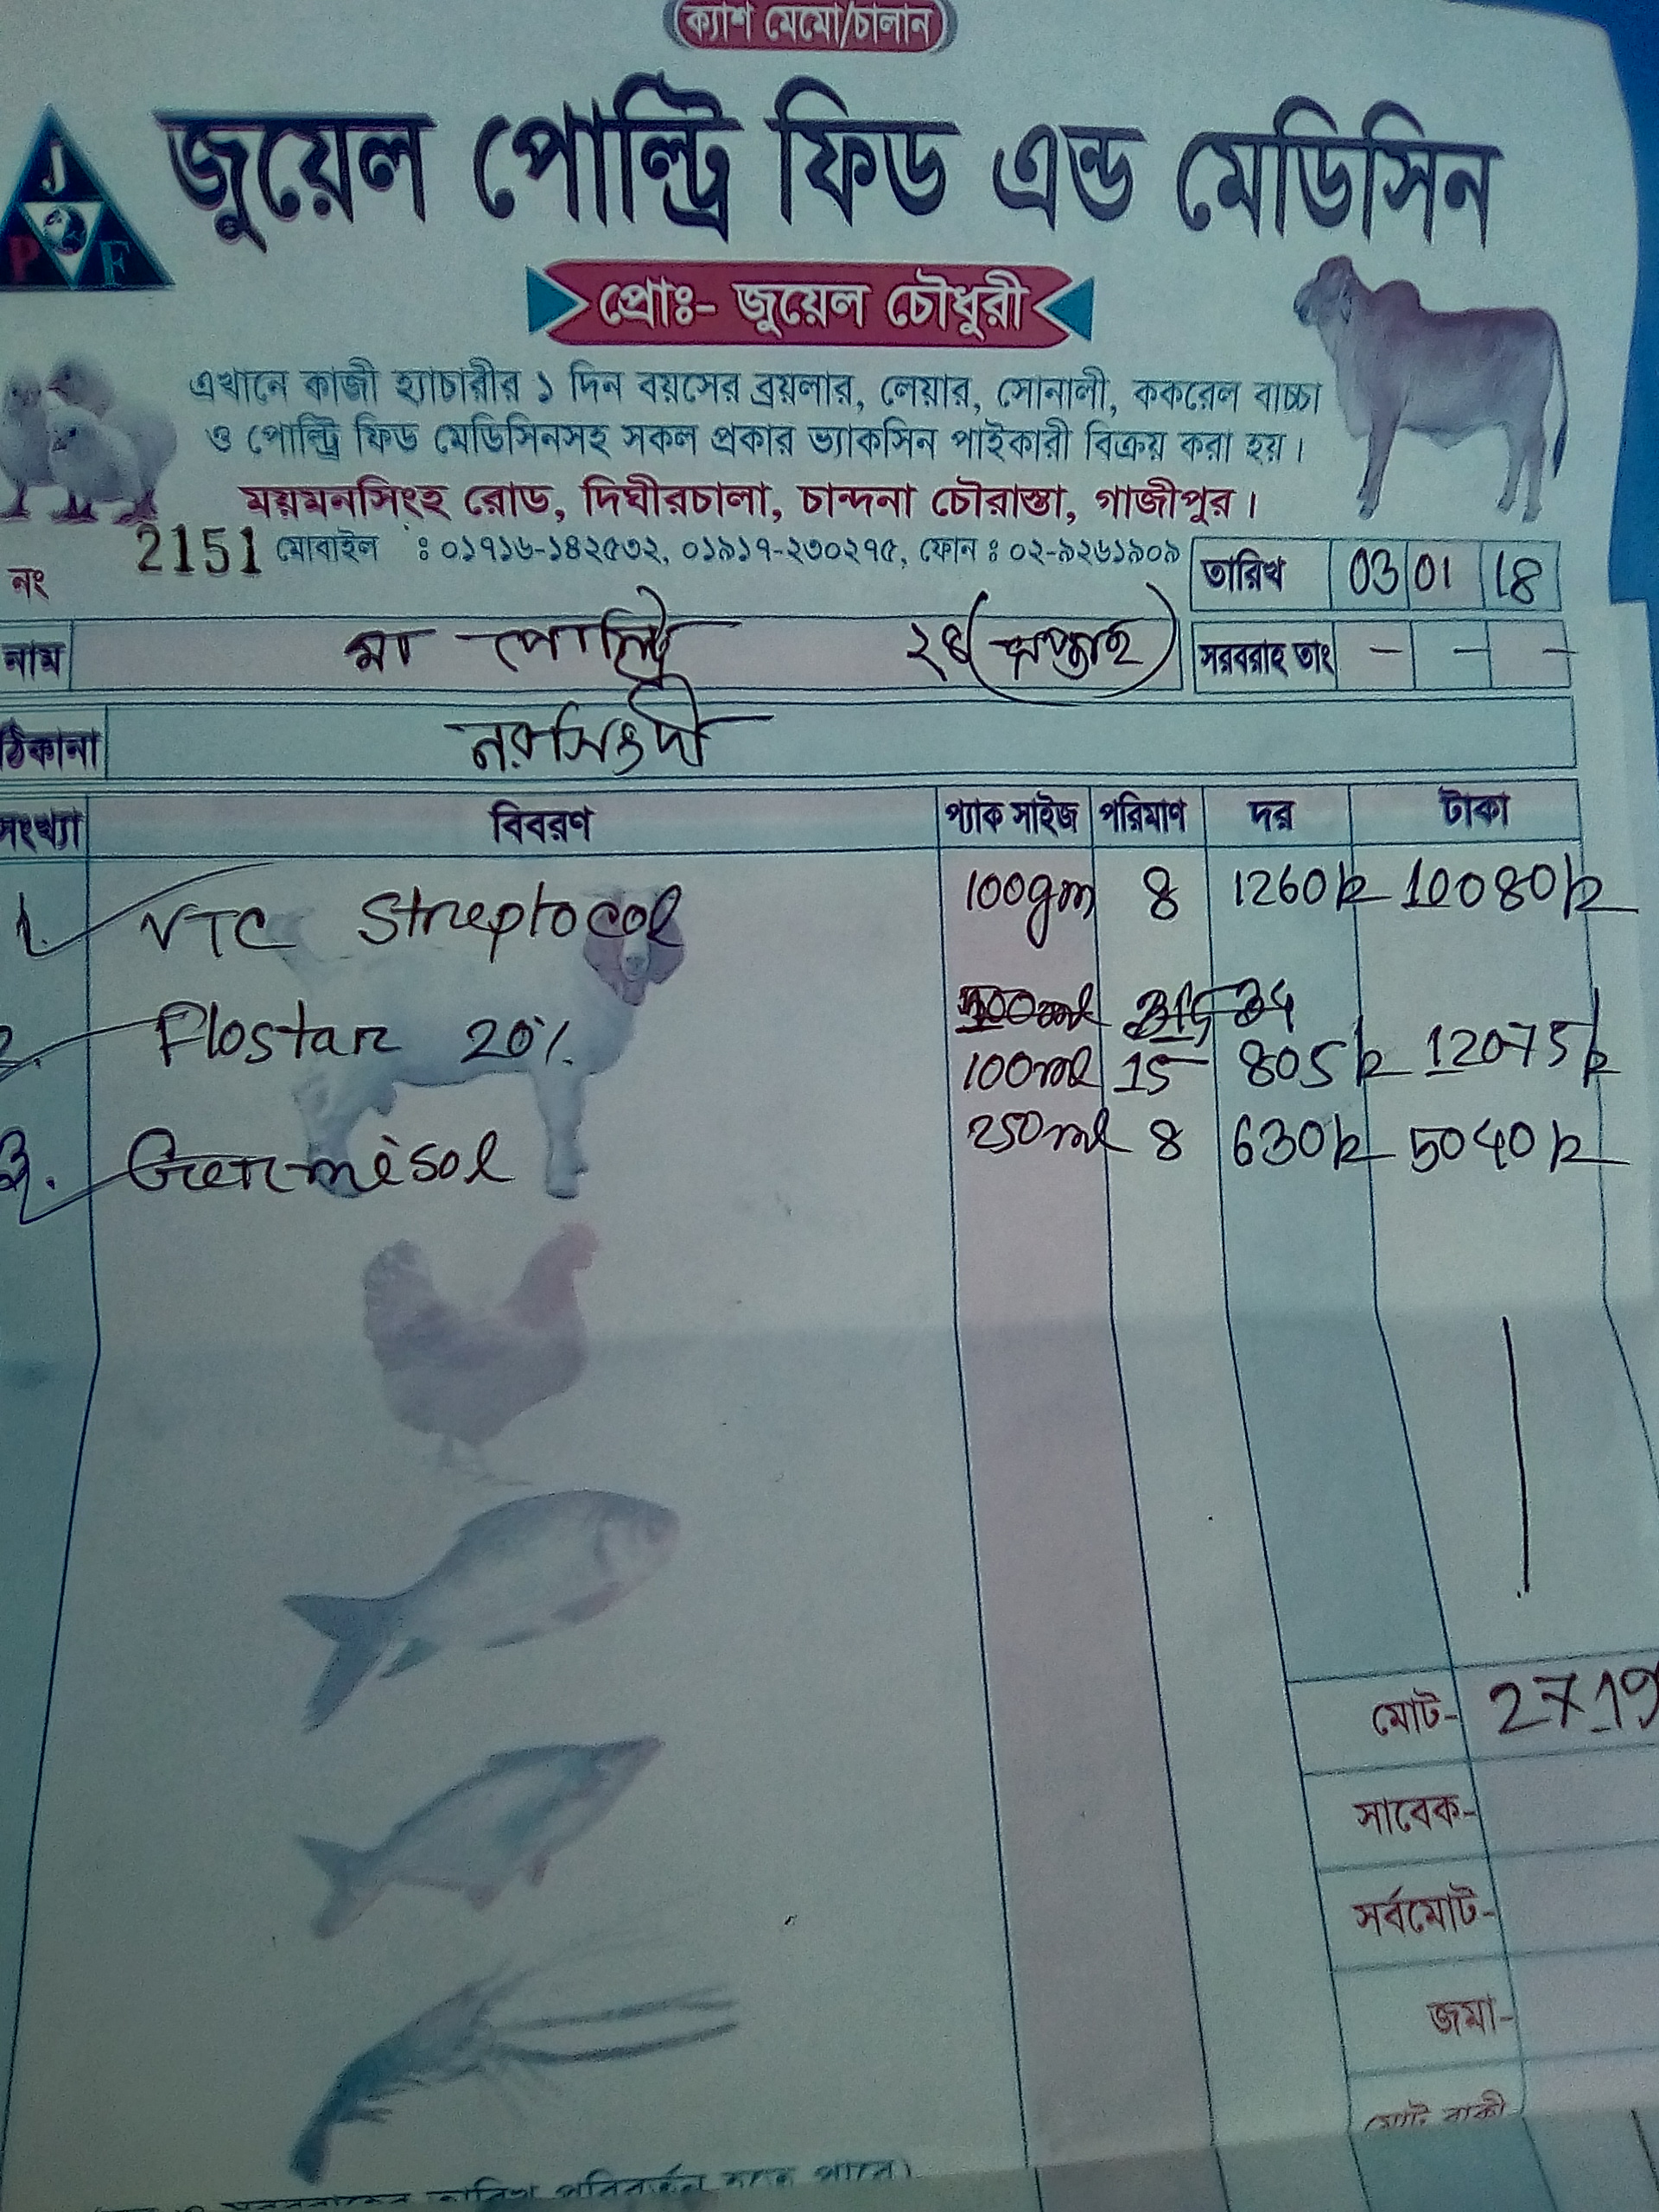 ক্যাশ মেমো/চালান
J
P F
জুয়েল পোল্ট্রি ফিড এন্ড মেডিসিন
প্রোঃ- জুয়েল চৌধুরী
এখানে কাজী হ্যাচারীর ১ দিন বয়সের ব্রয়লার, লেয়ার, সোনালী, ককরেল বাচ্চা
ও পোল্ট্রি ফিড মেডিসিনসহ সকল প্রকার ভ্যাকসিন পাইকারী বিক্রয় করা হয়।
ময়মনসিংহ রোড, দিঘীরচালা, চান্দনা চৌরাস্তা, গাজীপুর।
নং 2151 মোবাইল : ০১৭১৬-১৪২৫৩২, ০১৯১৭-২৩০২৭৫, ফোন : ০২-৯২৬১৯০৯
তারিখ 03 01 18
নাম মা পোল্ট্রি ২৪ (সপ্তাহ)
সরবরাহ তাং - - -
ঠিকানা নরসিংদী
সংখ্যা বিবরণ প্যাক সাইজ পরিমাণ দর টাকা
1. VTC Streptocol 100gm 8 1260 10080
2. Flostar 20% 100ml 15 805 12075
3. Germisol 250ml 8 630 5040
মোট- 2719
সাবেক-
সর্বমোট-
জমা-
মোট বাকী-
তারিখ পরিবর্তন হতে পারে)